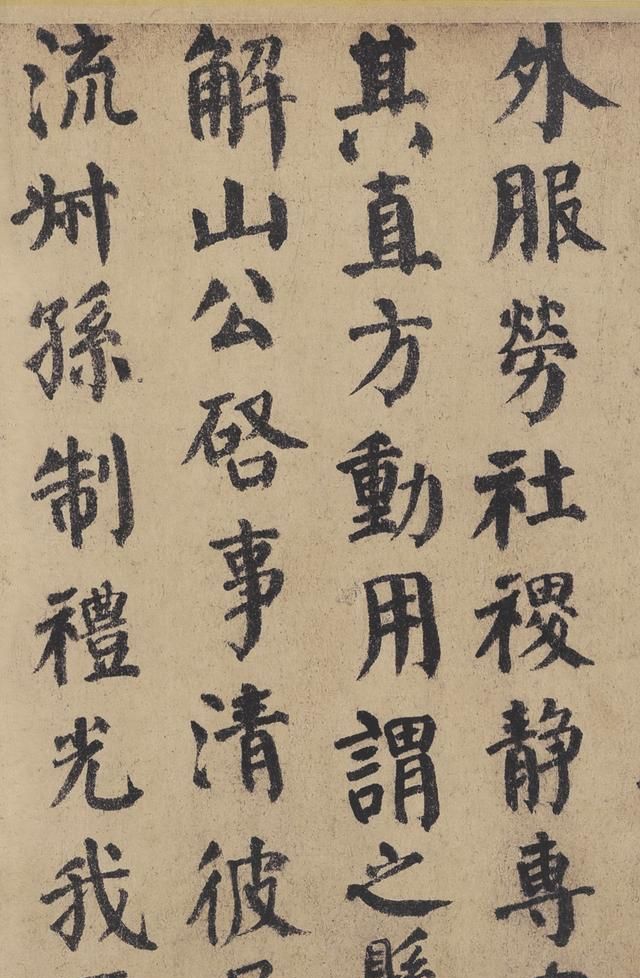 外服勞社稷静專
其直方動用謂之
解山公啓事清彼
流叔孫制禮光我